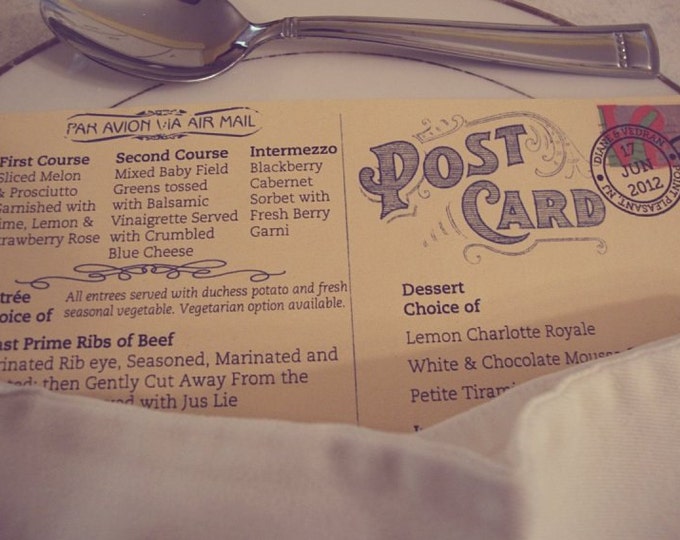 PAR AVION VIA AIR MAIL
First Course
Sliced Melon
& Prosciutto
Garnished with
Lime, Lemon &
Strawberry Rose
Second Course
Mixed Baby Field
Greens tossed
with Balsamic
Vinaigrette Served
with Crumbled
Blue Cheese
Intermezzo
Blackberry
Cabernet
Sorbet with
Fresh Berry
Garni
Entrée
Choice of
All entrees served with duchess potato and fresh
seasonal vegetable. Vegetarian option available.
Prime Ribs of Beef
Marinated Rib eye, Seasoned, Marinated and
then Gently Cut Away From the
with Jus Lie
POST
CARD
DIANE & VEDRAN
17
JUN
2012
POINT PLEASANT, NJ
Dessert
Choice of
Lemon Charlotte Royale
White & Chocolate Mousse
Petite